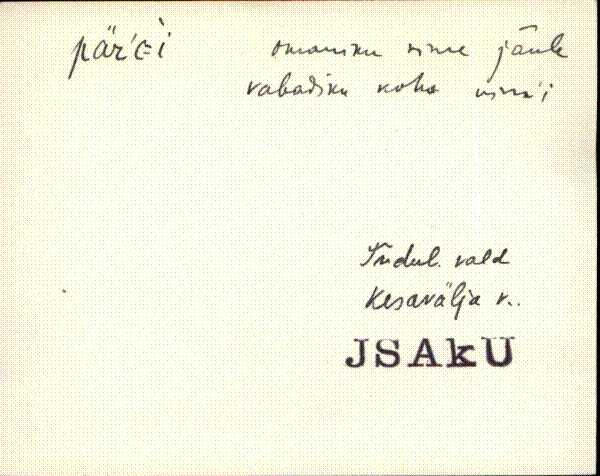 pär'ei omaniku nime järele
vabadiku koha nim'i
Tudul. vald
Kesavälja v..
JSAkU